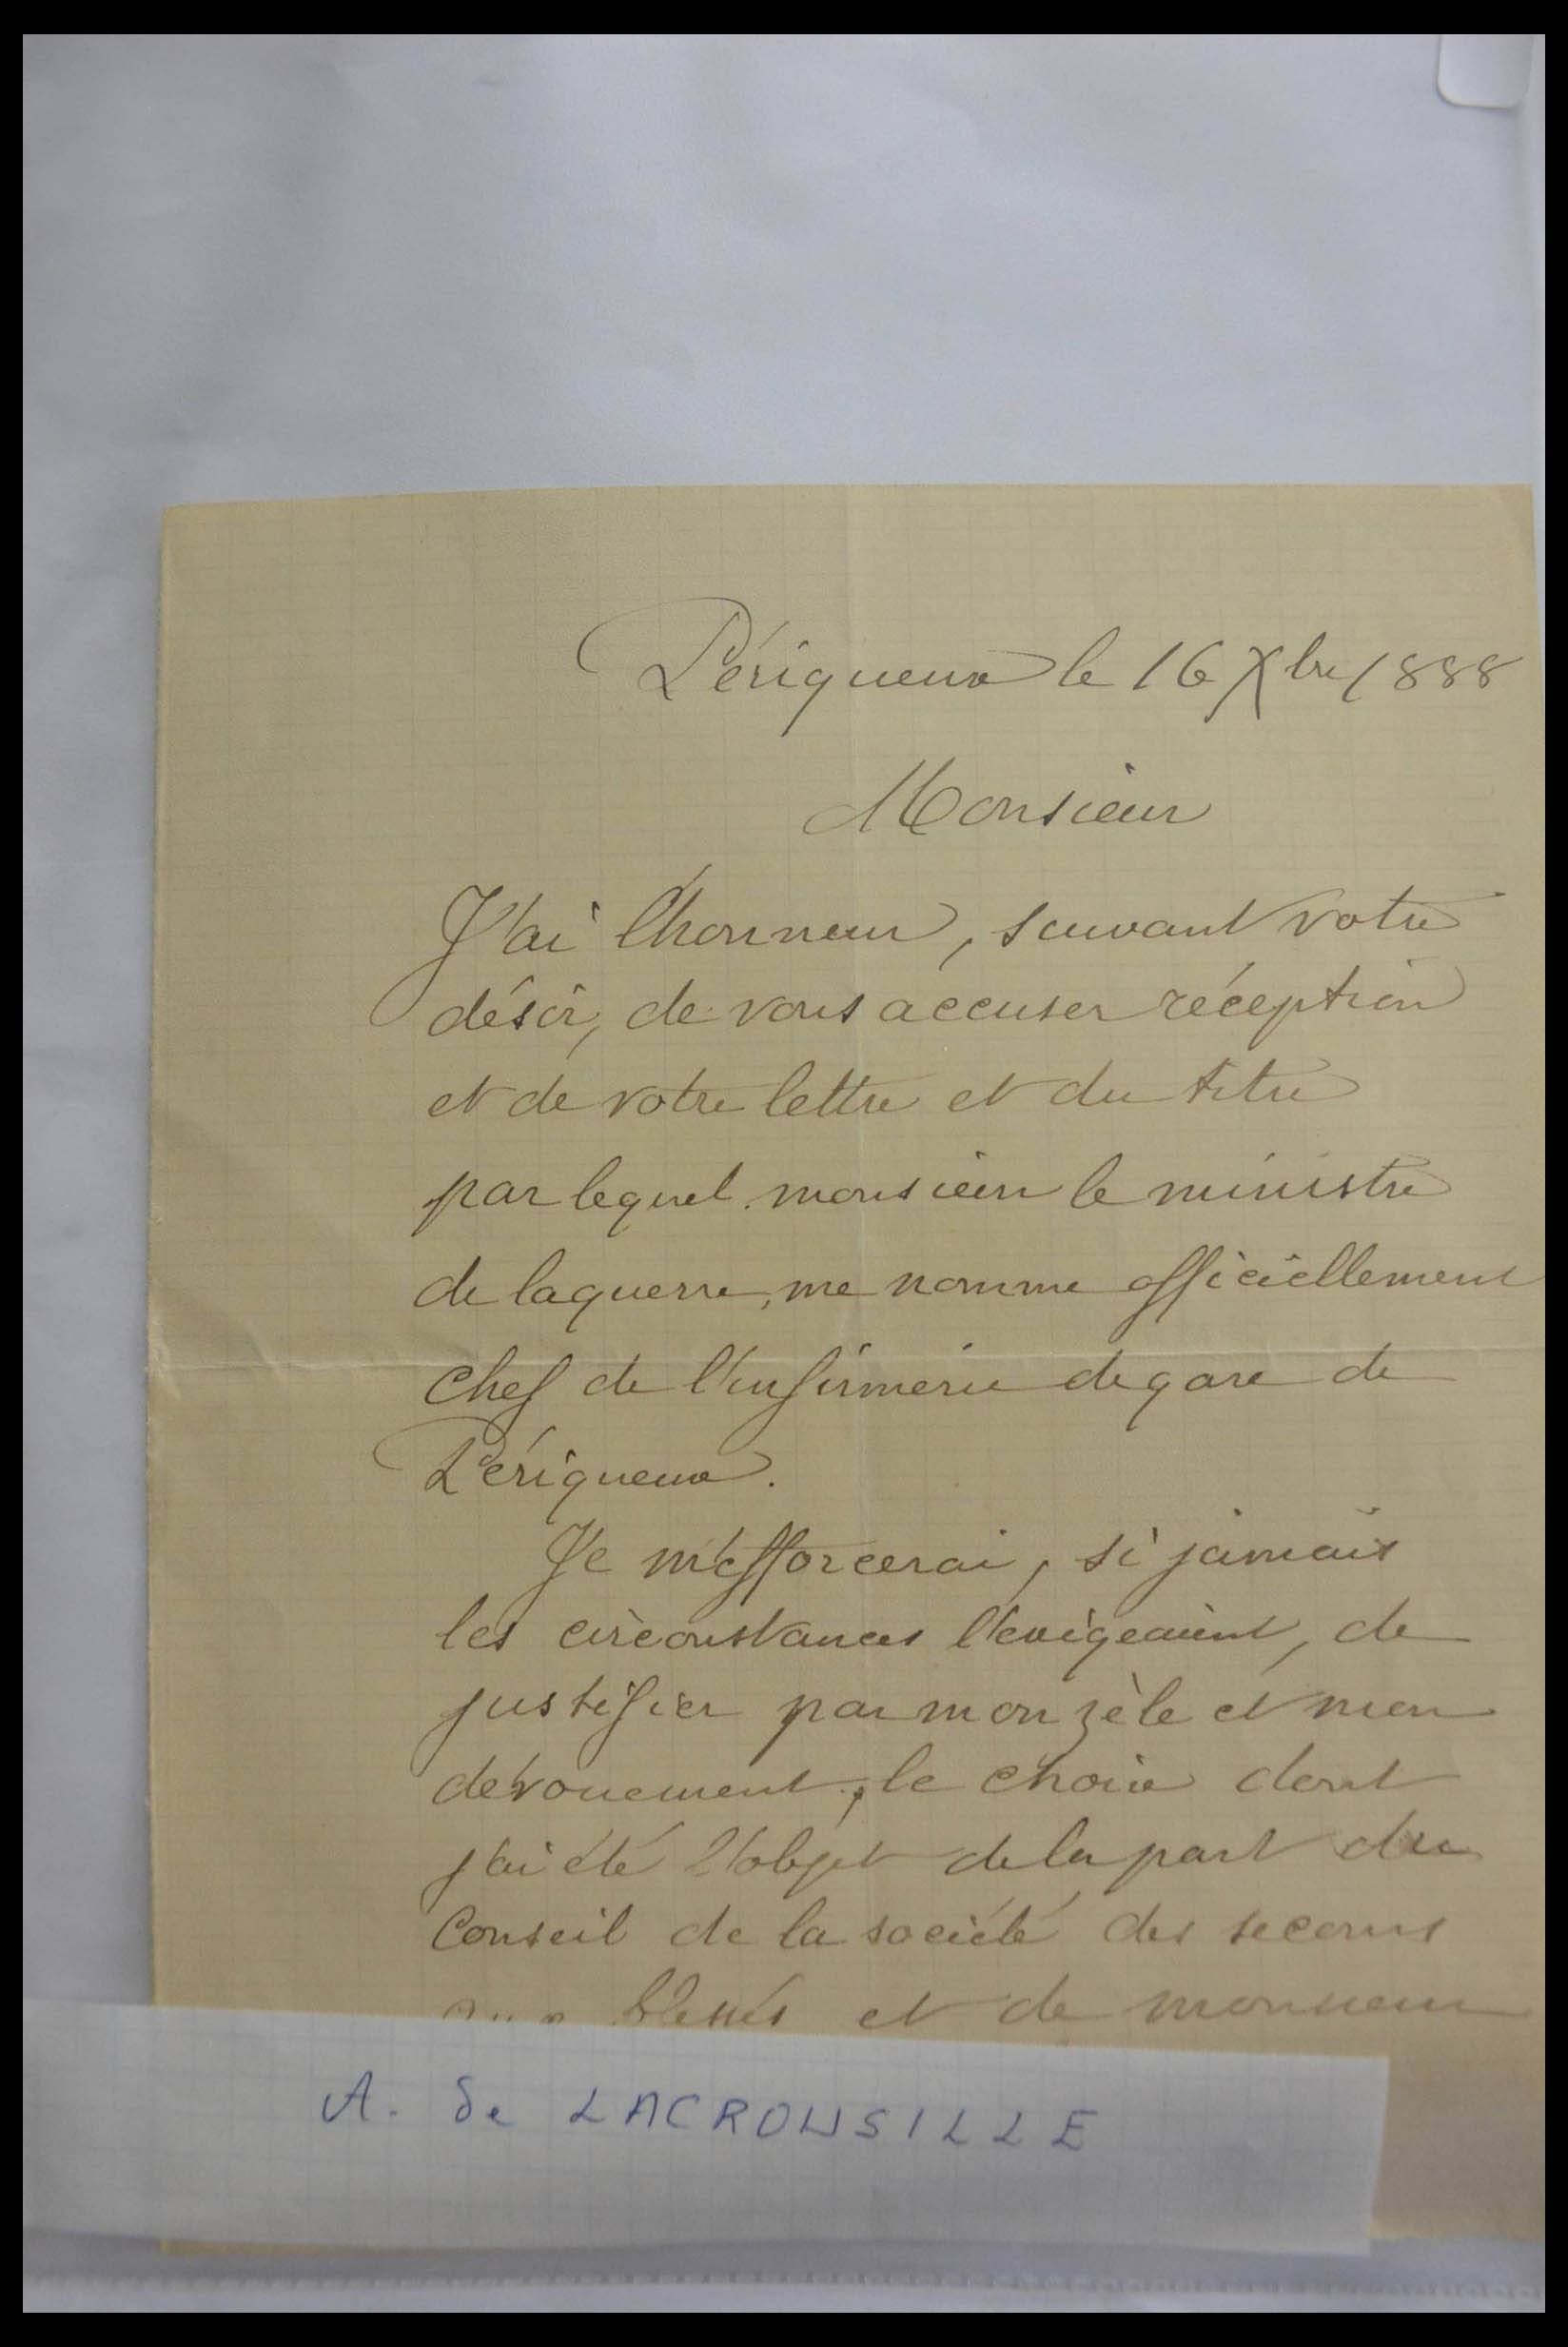 Périgueux le 16 Xbre 1888
Monsieur
J'ai l'honneur, suivant votre
désir, de vous accuser réception
et de votre lettre et du titre
par lequel monsieur le ministre
de la guerre, me nomme officiellement
chef de l'infirmerie de gare de
Périgueux.
Je m'efforcerai, si jamais
les circonstances l'exigeaient, de
justifier par mon zèle et mon
dévouement, le choix dont
j'ai été l'objet de la part du
Conseil de la société des secours
aux blessés et de monsieur
A. de LACROUSILLE